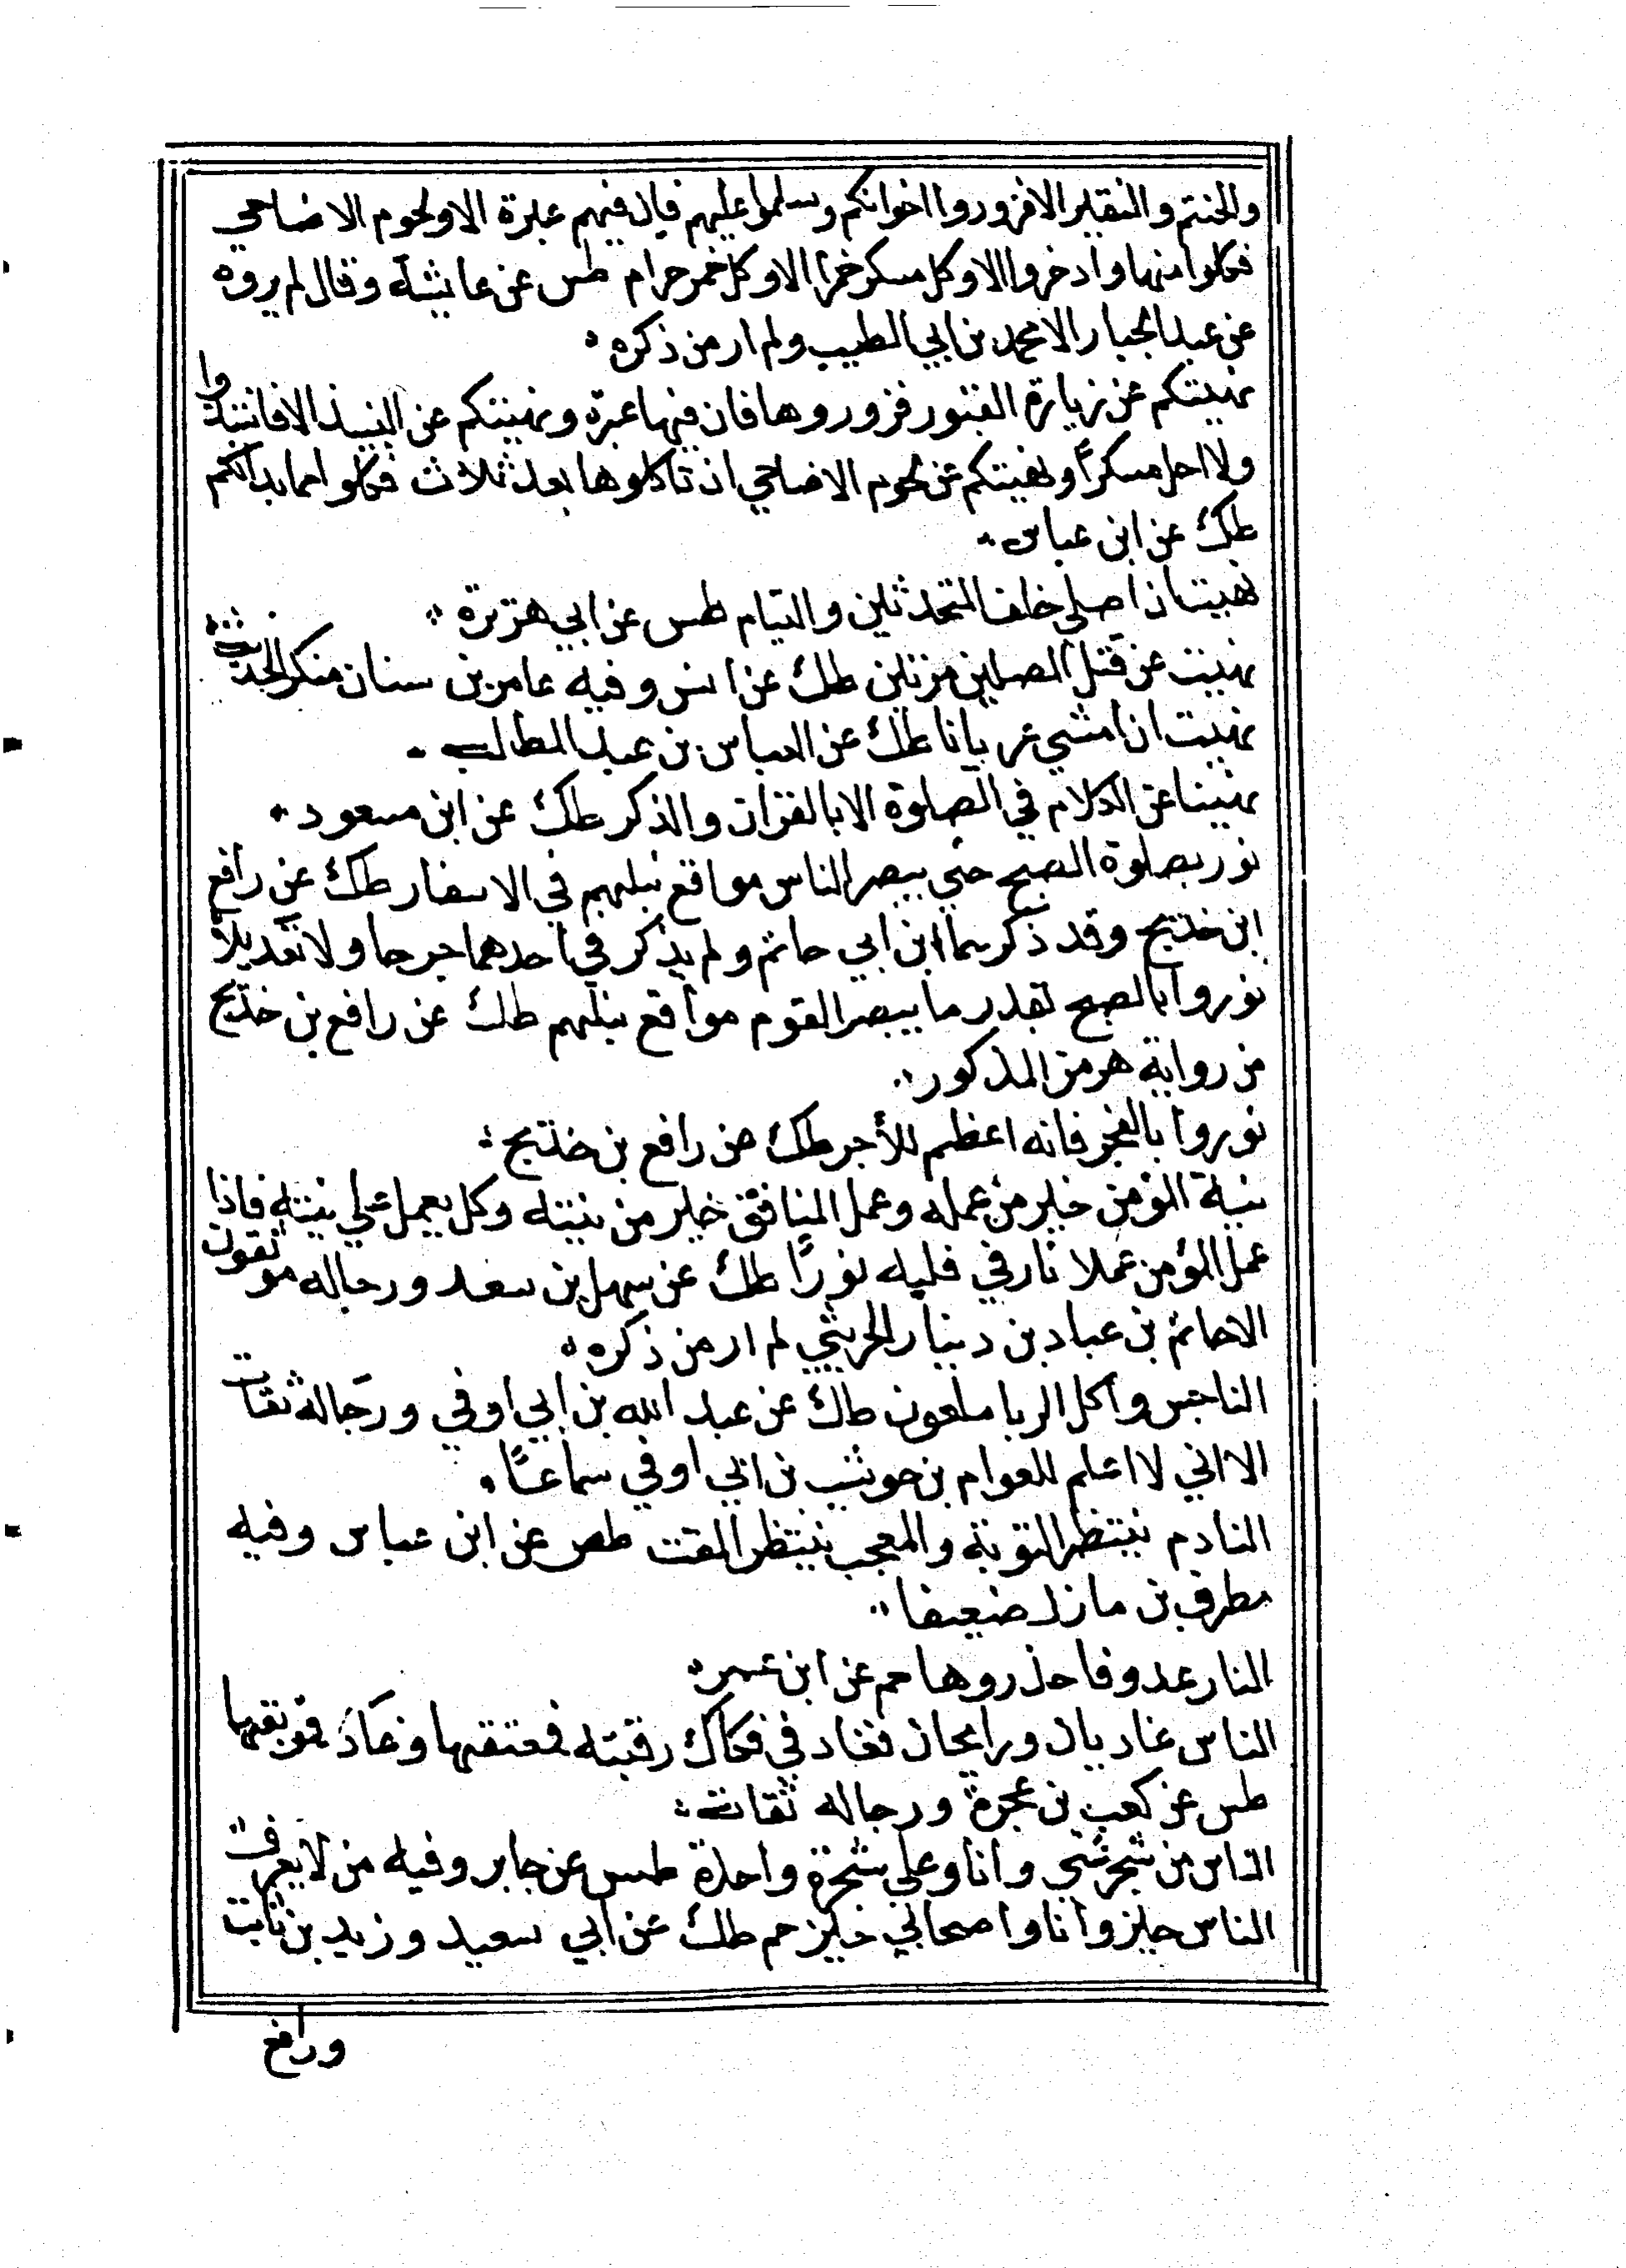 والحنتم والنقير الا فزوروا اخوانكم وسلموا عليهم فان فيهم عبرة الا ولحوم الاضاحي
فكلوا منها وادخروا الا وكل مسكر خمرا الا وكل خمر حرام طس عن عايشة وقال لم يروه
عن عبد الجبار الا محمد بن ابي الطيب ولم ار من ذكره
نهيتكم عن زيارة القبور فزوروها فان فيها عبرة ونهيتكم عن النبيذ الا فانتبذوا
ولا احل مسكرا ونهيتكم عن لحوم الاضاحي ان تاكلوها بعد ثلاث فكلوا ما بدالكم
طك عن ابن عباس
نهيت ان اصلي خلف المتحدثين والنيام طس عن ابي هريرة
نهيت عن قتل المصلين مرتين طك عن انس وفيه عامر بن سنان منكر الحديث
نهيت ان امشي عريانا طك عن العباس بن عبد المطلب
نهينا عن الكلام في الصلوة الا بالقران والذكر طك عن ابن مسعود
نور بصلوة الصبح حتي يبصر الناس مواقع نبلهم في الاسفار طك عن رافع
ابن خديج وقد ذكرهما ابن ابي حاتم ولم يذكر في احدهما جرحا ولا تعديلا
نوروا بالصبح بقدر ما يبصر القوم مواقع نبلهم طك عن رافع بن خديج
من رواية هرمز المذكور
نوروا بالفجر فانه اعظم للأجر طك عن رافع بن خديج
نية المؤمن خير من عمله وعمل المنافق خير من نيته وكل يعمل علي نيته فاذا
عمل المؤمن عملا نار في قلبه نورًا طك عن سهل بن سعد ورجاله موثقون
الا حاتم بن عباد بن دينار الحرشي لم ار من ذكره
الناجش واكل الربا ملعون طك عن عبد الله بن ابي اوفي ورجاله ثقات
الا اني لا اعلم للعوام بن حوشب بن ابي اوفي سماعًا
النادم ينتظر التوبة والمعجب ينتظر المقت طص عن ابن عباس وفيه
مطرف بن مازن ضعيف
النار عدو فاحذروها حم عن ابن عمر
الناس غاديان ورايحان فغاد في فكاك رقبته فمعتقها وغاد فموبقها
طس عن كعب بن عجرة ورجاله ثقات
الناس من شجر شتي وانا وعلي شجرة واحدة طس عن جابر وفيه من لا يعرف
الناس حيز وانا واصحابي حيز حم طك عن ابي سعيد وزيد بن ثابت
ورافع